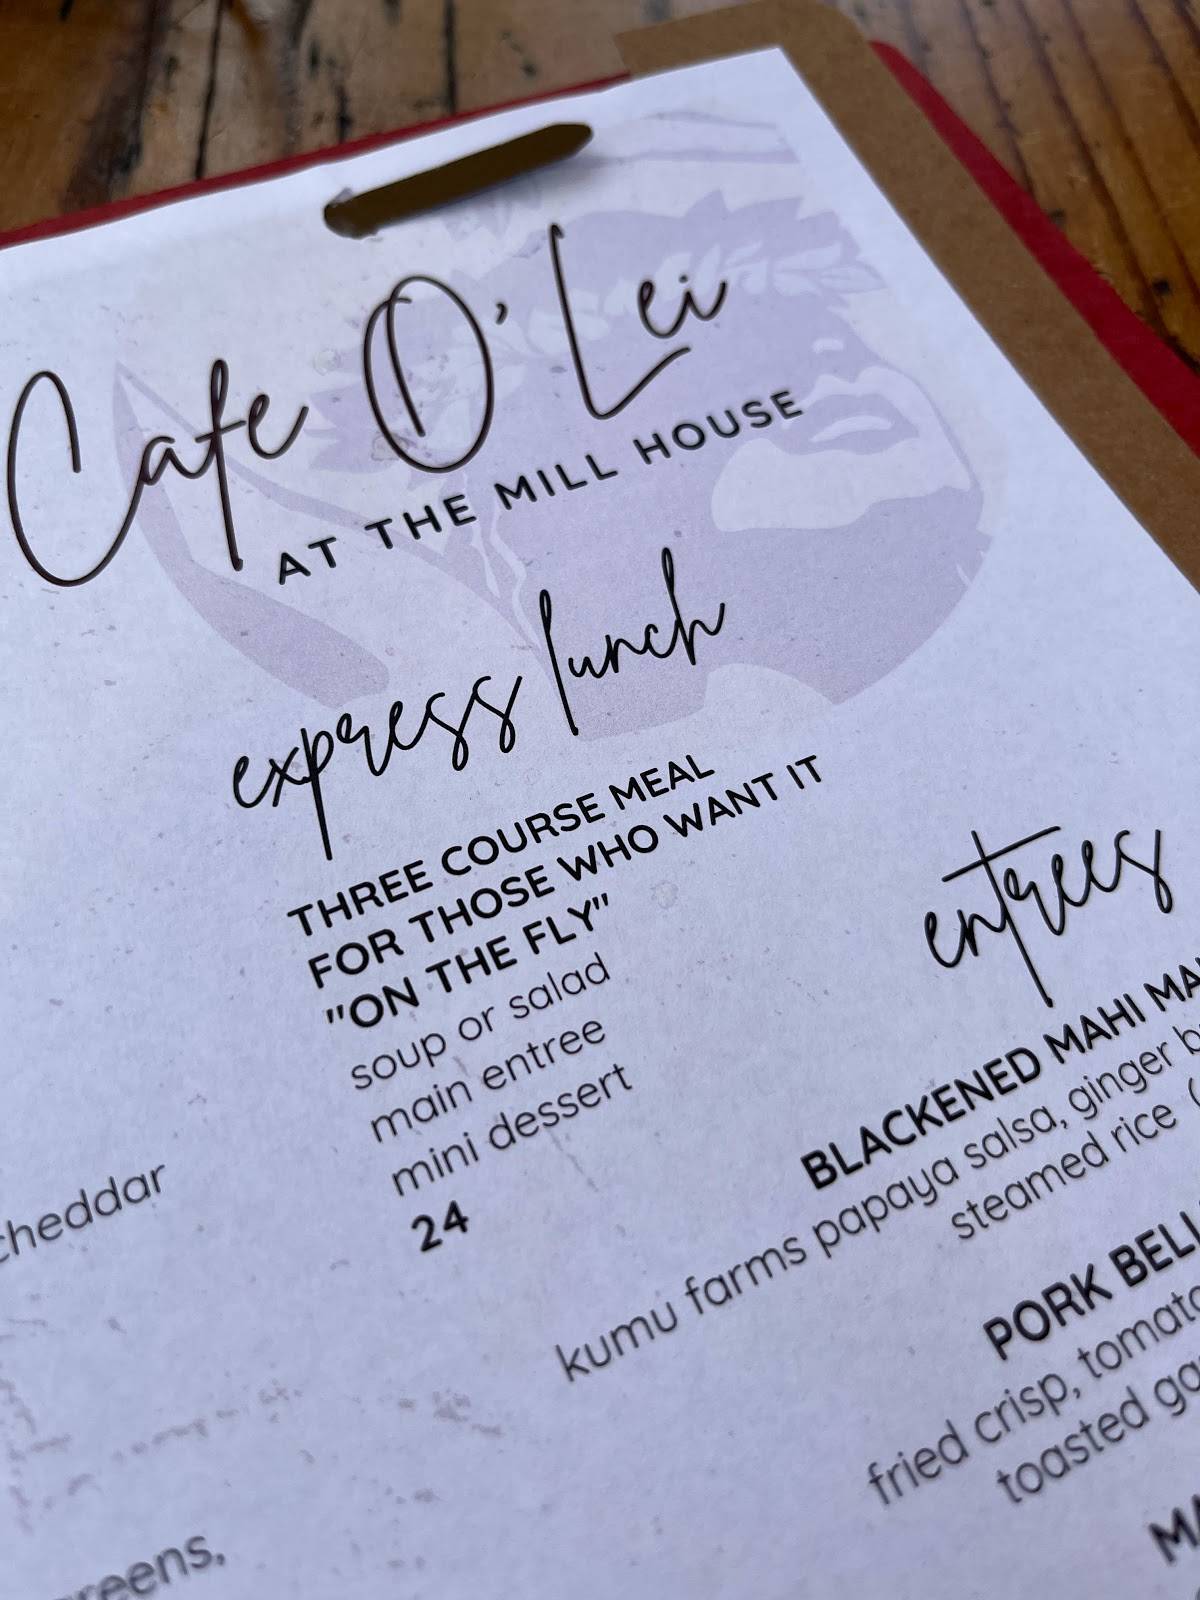 Cafe O'Lei
AT THE MILL HOUSE
express lunch
THREE COURSE MEAL
FOR THOSE WHO WANT IT
"ON THE FLY"
soup or salad
main entree
mini dessert
24
cheddar
entrees
BLACKENED MAHI
kumu farms papaya salsa, ginger
steamed rice (
PORK
fried crisp,
toasted